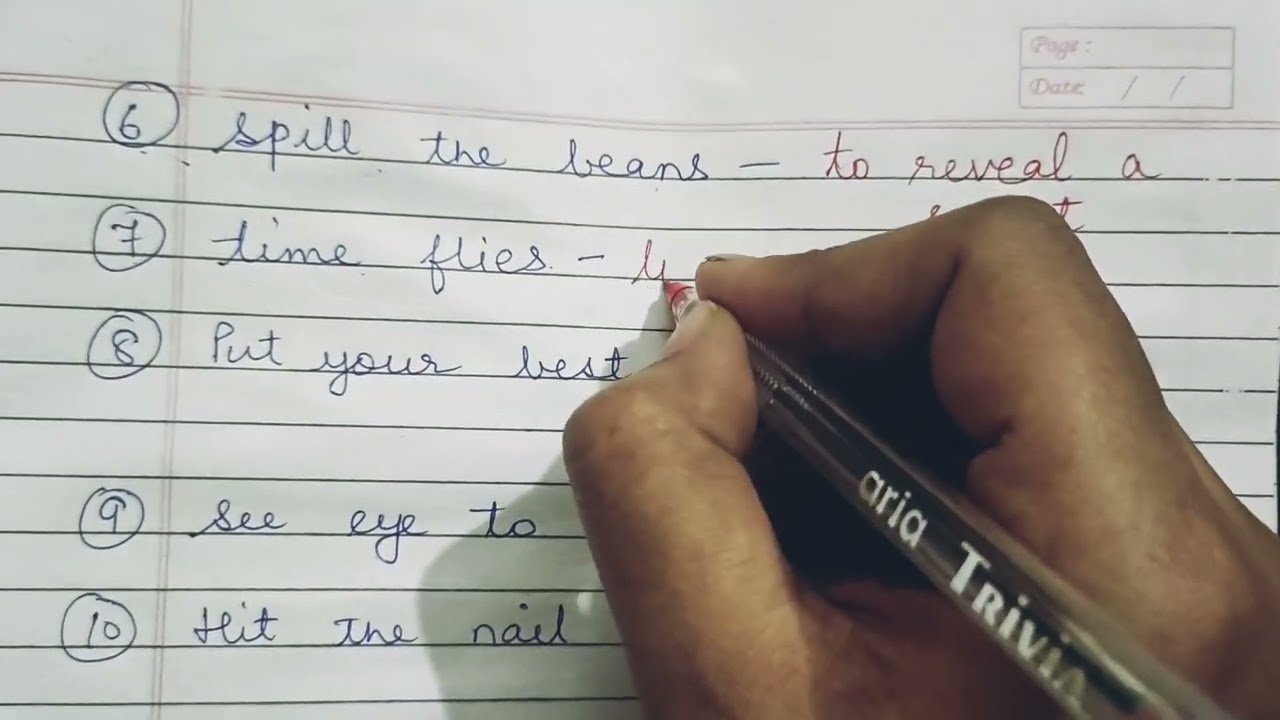 Page:
Date: / /
6 spill the beans - to reveal a
7 time flies -
8 Put your best
9 see eye to
10 Hit the nail
aria TRIVIA